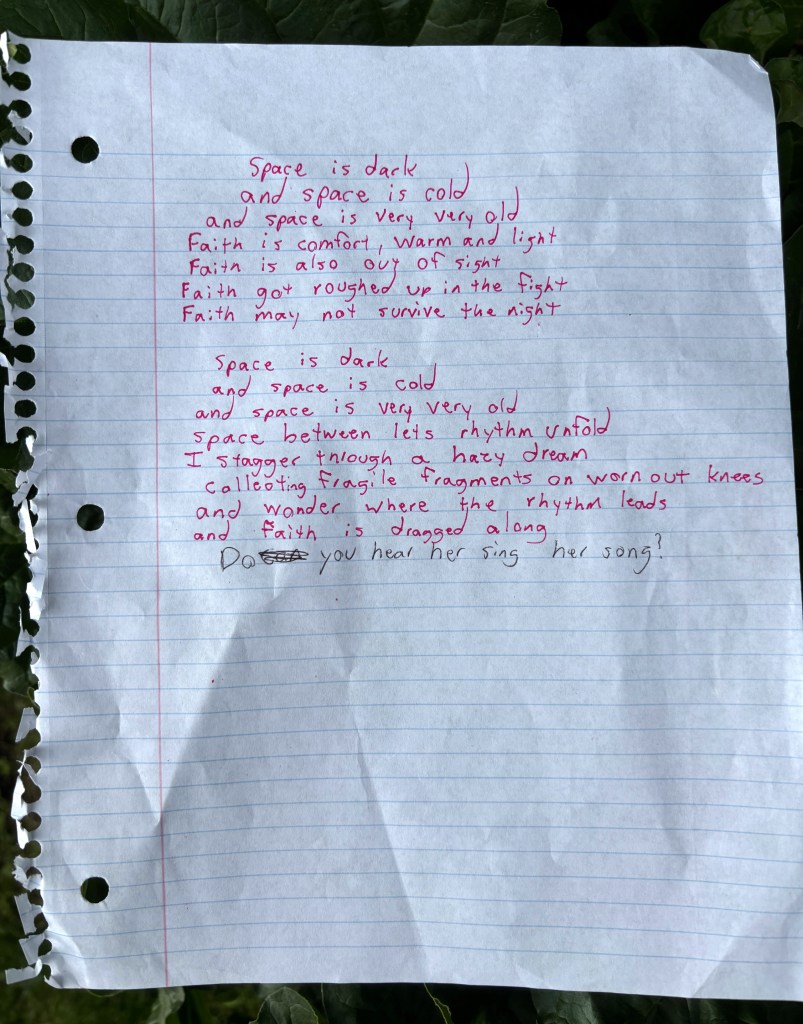 Space is dark
and space is cold
and space is very very old
Faith is comfort, warm and light
Faith is also out of sight
Faith got roughed up in the fight
Faith may not survive the night
Space is dark
and space is cold
and space is very very old
space between lets rhythm unfold
I stagger through a hazy dream
collecting fragile fragments on worn out knees
and wonder where the rhythm leads
and faith is dragged along
Do you hear her sing her song?